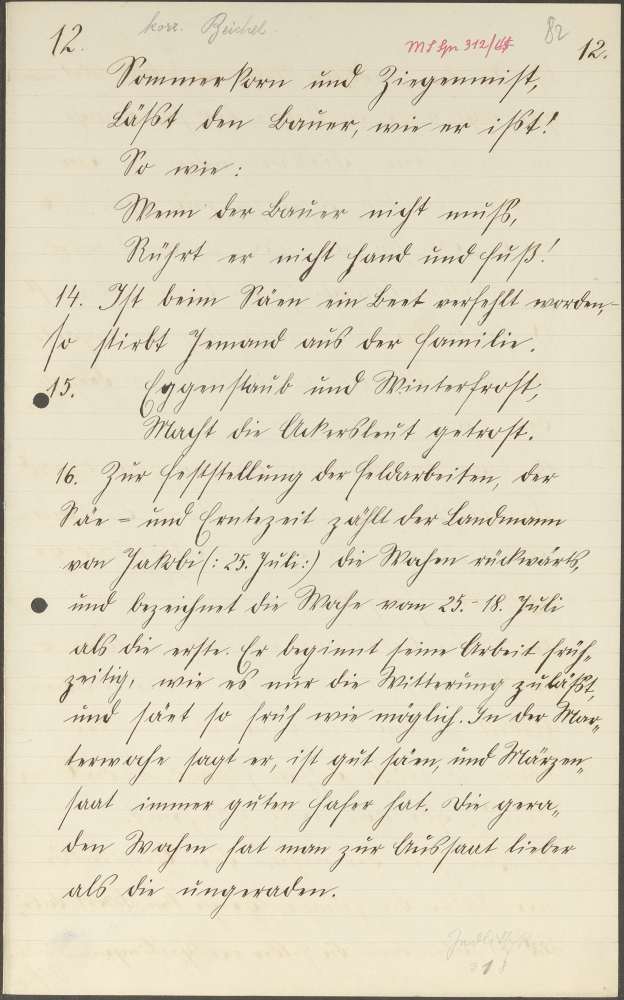 12.
korr. Reichel.
82
12.
Sommerkorn und Ziegenmist,
Läßt den Bauer, wie er ißt!
So wie:
Wenn der Bauer nicht muß,
Rührt er nicht Hand und Fuß!
14. Ist beim Säen ein Beet verfehlt worden,
so stirbt Jemand aus der Familie.
15. Eggenstaub und Winterfrost,
Macht die Ackersleut getrost.
16. Zur Feststellung der Feldarbeiten, der
Säe- und Erntezeit zählt der Landmann
von Jakobi (: 25. Juli:) die Wochen rückwärts,
und bezeichnet die Woche vom 25.-18. Juli
als die erste. Er beginnt seine Arbeit früh-
zeitig, wie es nur die Witterung zuläßt,
und säet so früh wie möglich. In der Mar-
terwoche sagt er, ist gut säen, und Märzen-
saat immer guten Hafer hat. Die gera-
den Wochen hat man zur Aussaat lieber
als die ungeraden.